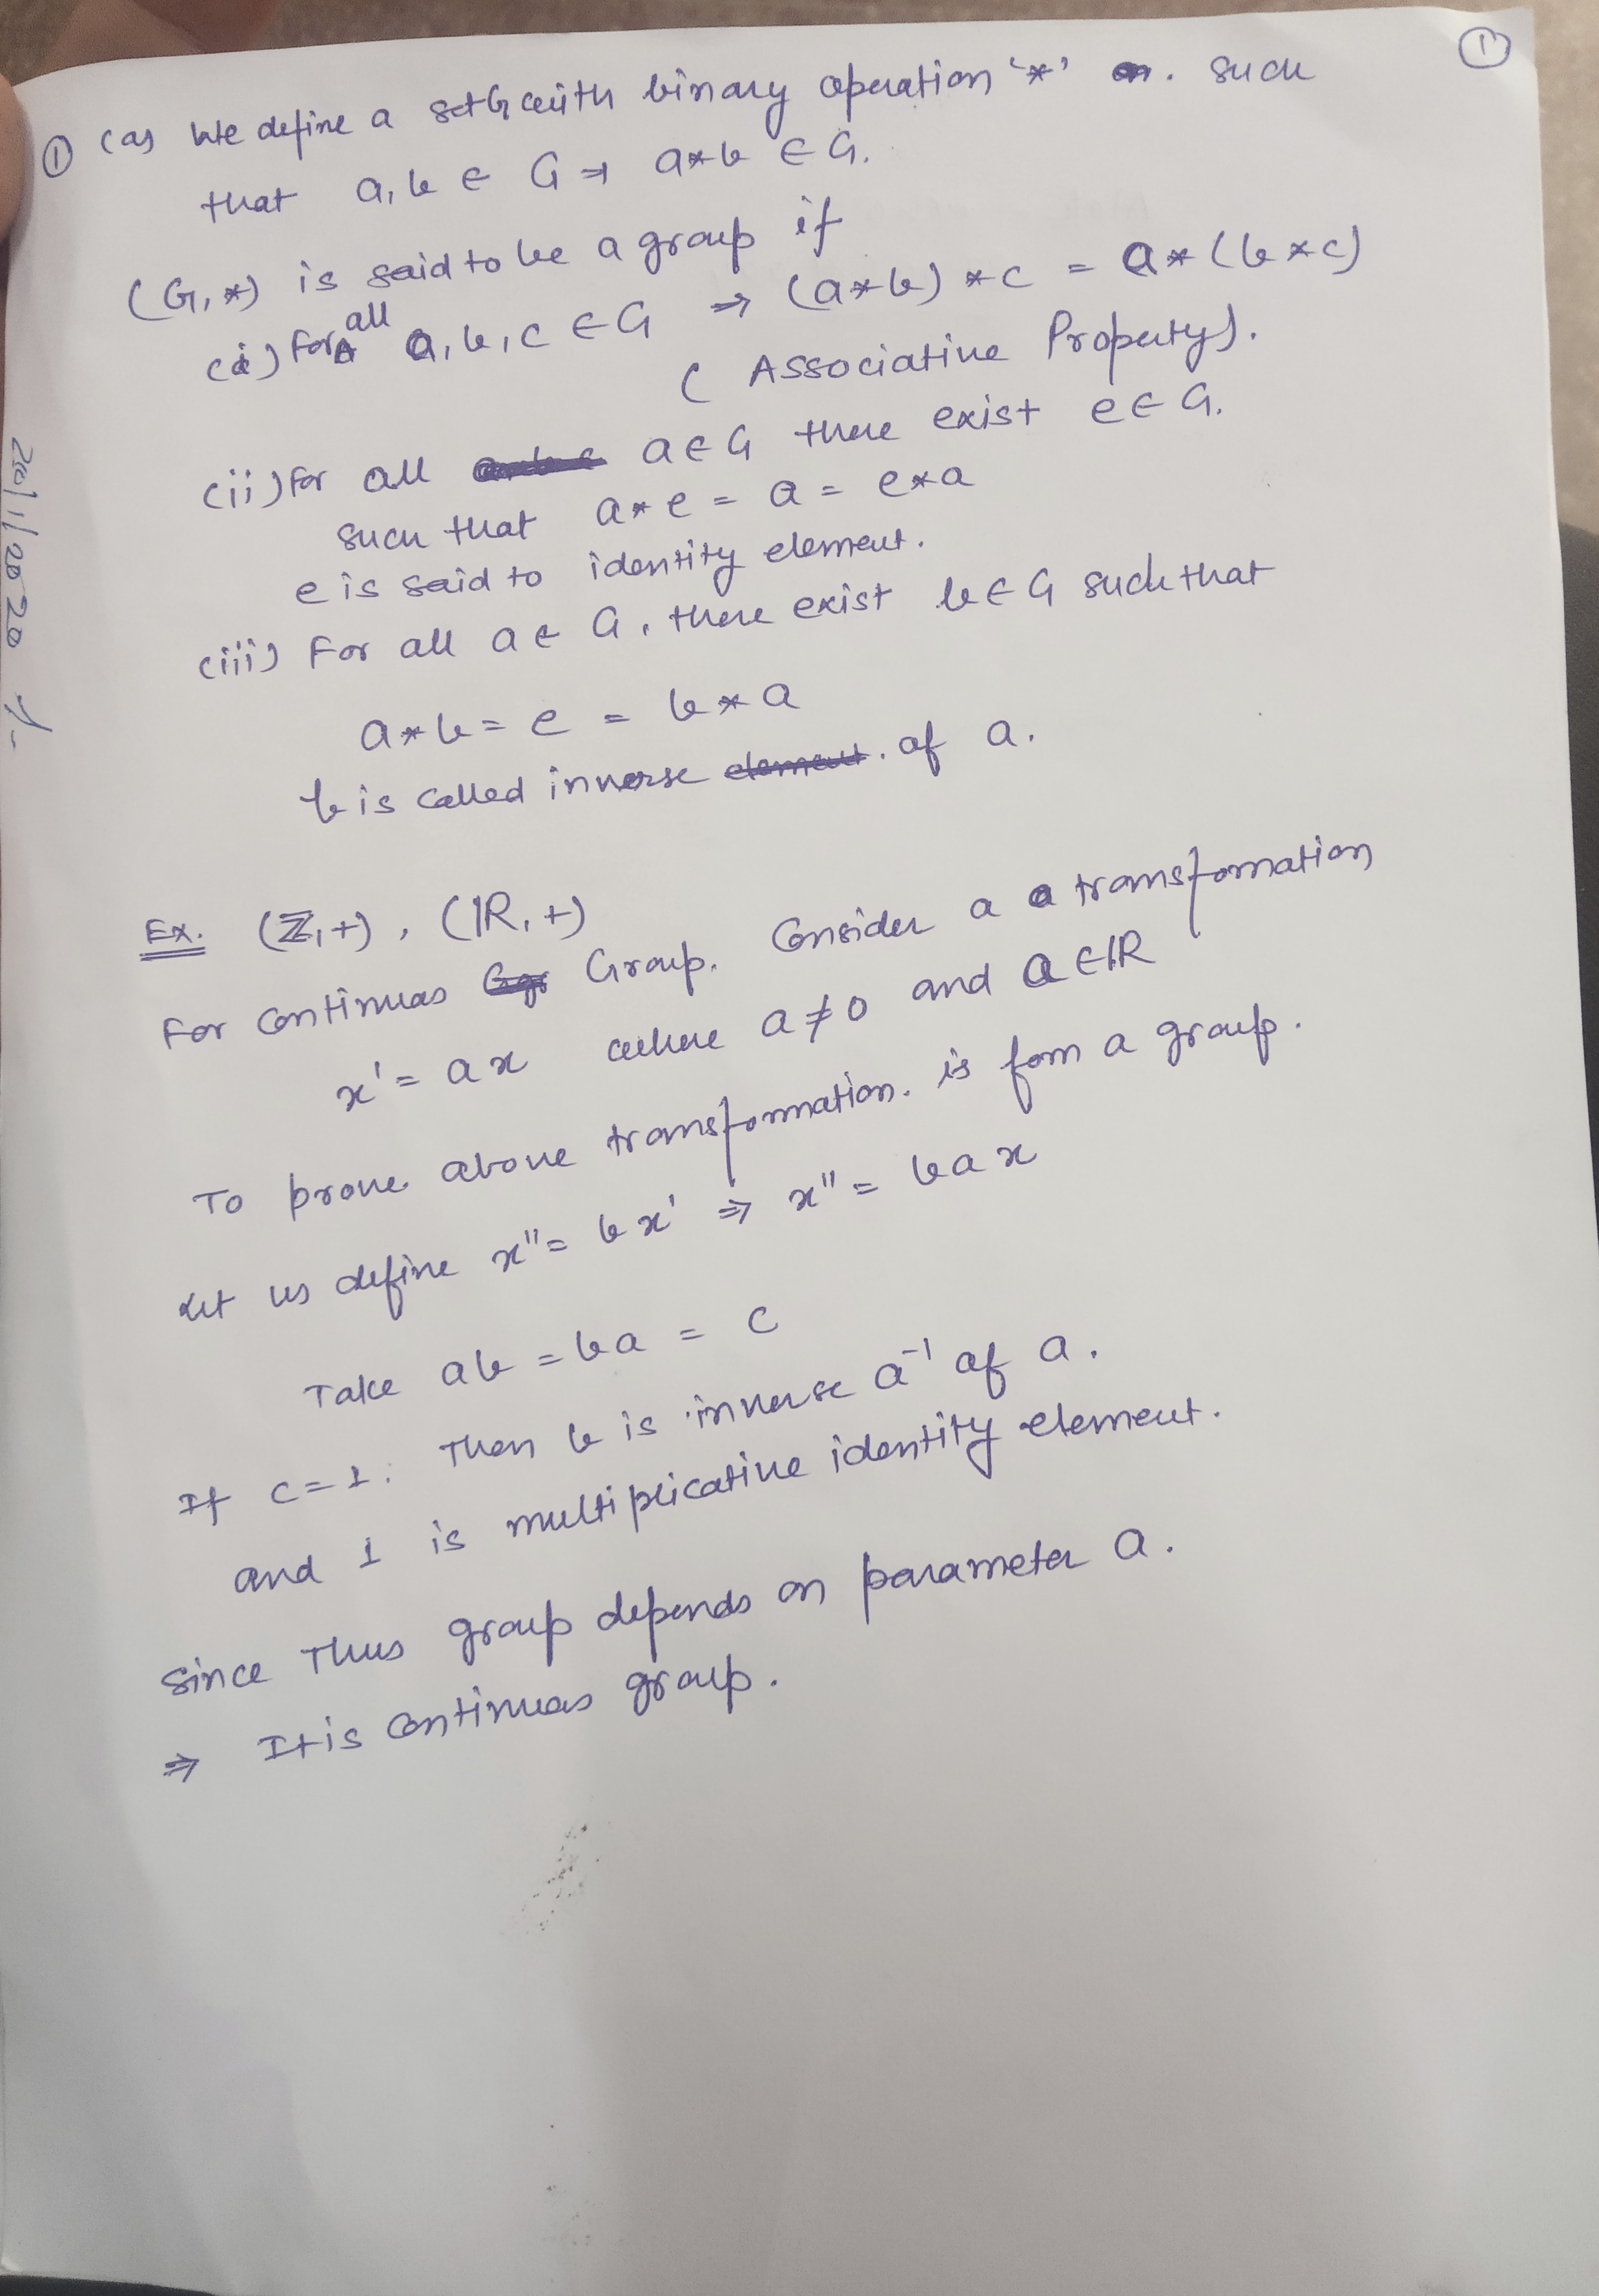 ①
① (a) We define a set G with binary operation '*' such
that a, b ∈ G ⇒ a*b ∈ G.
(G, *) is said to be a group if
(i) For all a, b, c ∈ G ⇒ (a*b)*c = a*(b*c)
(Associative Property).
(ii) For all a ∈ G there exist e ∈ G.
such that a*e = a = e*a
e is said to identity element.
(iii) For all a ∈ G, there exist b ∈ G such that
a*b = e = b*a
b is called inverse of a.
Ex. (ℤ, +), (ℝ, +)
For continuas Group. Consider a a transformation
x' = ax where a ≠ 0 and a ∈ ℝ
To prove above transformation. is form a group.
Let us define x'' = bx' ⇒ x'' = bax
Take ab = ba = c
If c = 1. Then b is inverse a⁻¹ of a.
and 1 is multiplicative identity element.
Since Thus group depends on parameter a.
⇒ It is continuas group.